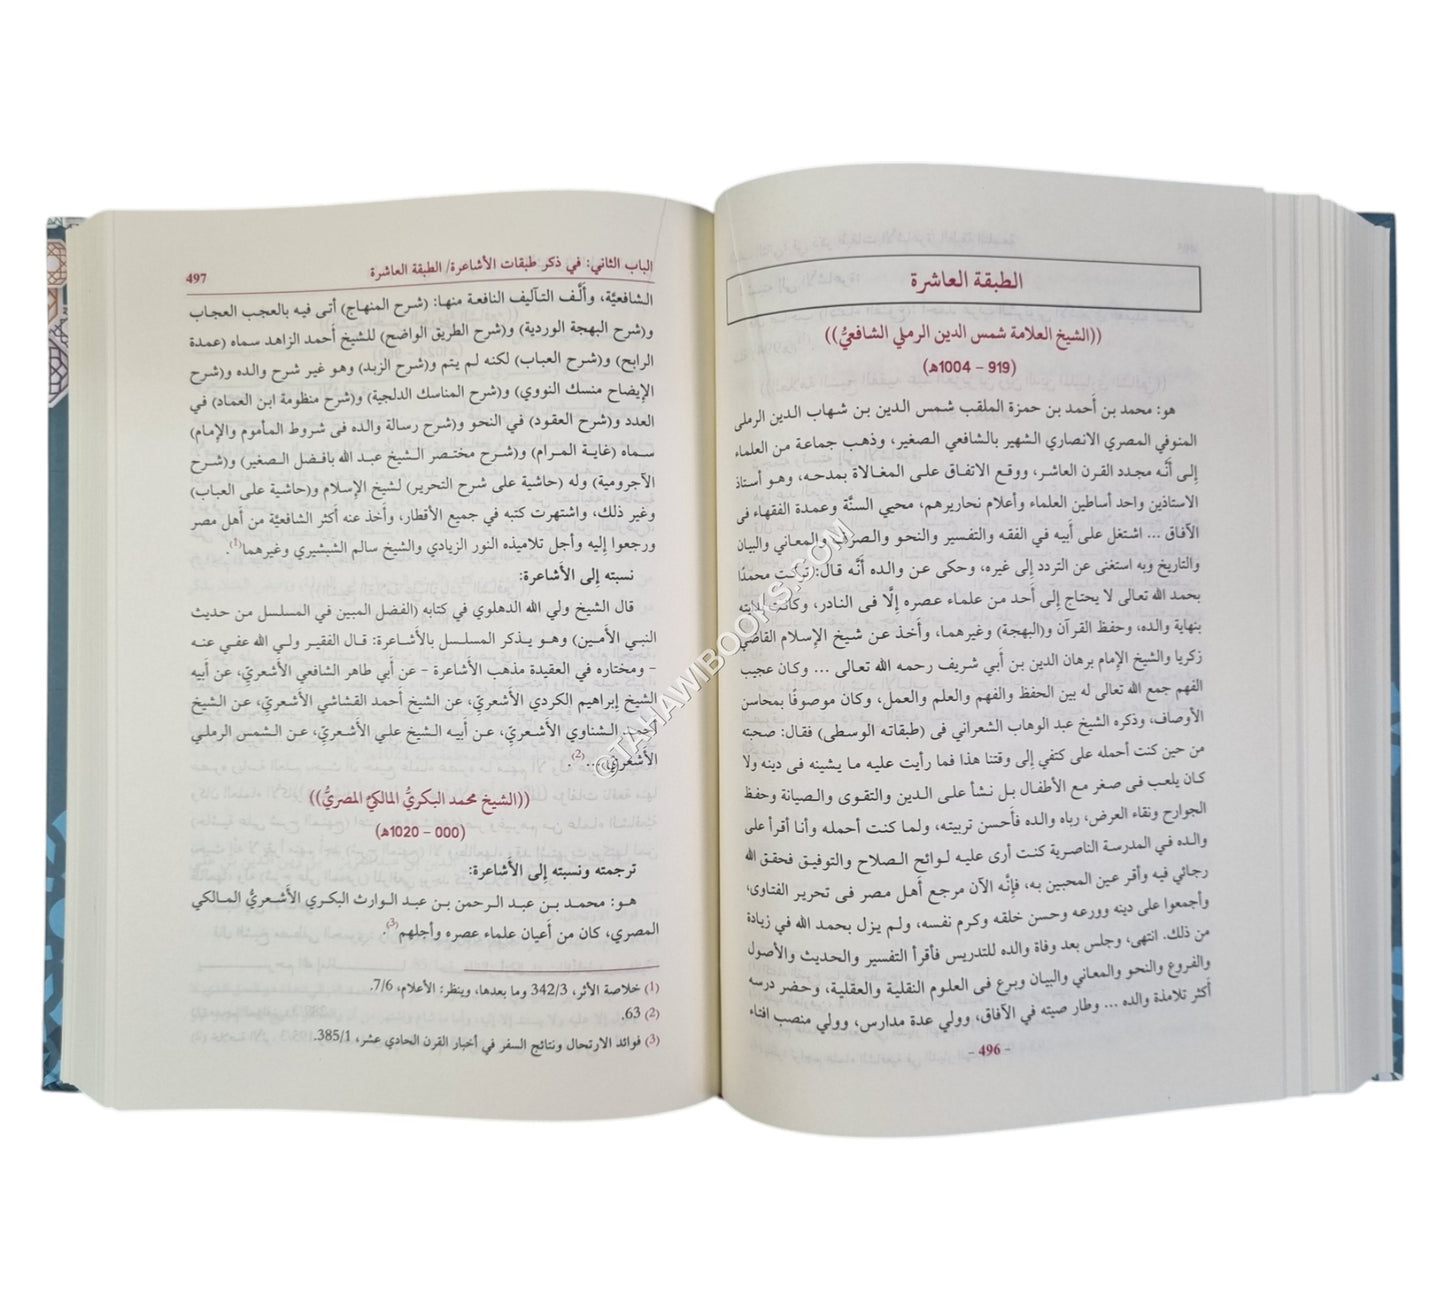 الطبقة العاشرة
((الشيخ العلامة شمس الدين الرملي الشافعيُّ))
(919 – 1004هـ)
هو: محمد بن أَحمد بن حمزة الملقب شمس الدين بن شهاب الدين الرملى
المنوفي المصري الانصاري الشهير بالشافعي الصغير، وذهب جماعة من العلماء
إلى أَنَّه مجدد القرن العاشر، ووقع الاتفاق على المغالاة بمدحه، وهو أستاذ
الاستاذين واحد أساطين العلماء وأعلام نحاريرهم، محيي السنَّة وعمدة الفقهاء فى
الآفاق ... اشتغل على أَبيه في الفقه والتفسير والنحو والصرف والمعاني والبيان
والتاريخ وبه استغنى عن التردد إِلى غيره، وحكى عن والده أَنَّه قال: تركت محمدًا
بحمد الله تعالى لا يحتاج إلى أحد من علماء عصره إلَّا فى النادر، وكانت بدايته
بنهاية والده، وحفظ القرآن و(البهجة) وغيرهما، وأَخذ عن شيخ الإِسلام القاضي
زكريا والشيخ الإمام برهان الدين بن أَبي شريف رحمه الله تعالى ... وكان عجيب
الفهم جمع الله تعالى له بين الحفظ والفهم والعلم والعمل، وكان موصوفًا بمحاسن
الأوصاف، وذكره الشيخ عبد الوهاب الشعراني فى (طبقاته الوسطى) فقال: صحبته
من حين كنت أحمله على كتفي إلى وقتنا هذا فما رأيت عليه ما يشينه فى دينه ولا
كان يلعب فى صغر مع الأطفال بل نشأ على الدين والتقوى والصيانة وحفظ
الجوارح ونقاء العرض، رباه والده فأحسن تربيته، ولما كنت أحمله وأنا أقرأ على
والده في المدرسة الناصرية كنت أرى عليه لوائح الصلاح والتوفيق فحقق الله
رجائي فيه وأقر عين المحبين به، فإِنَّه الآن مرجع أَهل مصر فى تحرير الفتاوى،
وأجمعوا على دينه وورعه وحسن خلقه وكرم نفسه، ولم يزل بحمد الله في زيادة
من ذلك. انتهى، وجلس بعد وفاة والده للتدريس فأقرأ التفسير والحديث والأصول
والفروع والنحو والمعاني والبيان وبرع فى العلوم النقلية والعقلية، وحضر درسه
أكثر تلامذة والده ... وطار صيته في الآفاق، وولي عدة مدارس، وولي منصب افتاء
- 496 -
الباب الثاني: في ذكر طبقات الأشاعرة/ الطبقة العاشرة 497
الشافعيَّة، وأَلَّف التآليف النافعة منها: (شرح المنهاج) أتى فيه بالعجب العجاب
و(شرح البهجة الوردية) و(شرح الطريق الواضح) للشيخ أحمد الزاهد سماه (عمدة
الرابح) و(شرح العباب) لكنه لم يتم و(شرح الزبد) وهو غير شرح والده و(شرح
الإيضاح منسك النووي) و(شرح المناسك الدلجية) و(شرح منظومة ابن العماد) في
العدد و(شرح العقود) في النحو و(شرح رسالة والده فى شروط المأموم والإمام)
سماه (غاية المرام) و(شرح مختصر الشيخ عبد الله بافضل الصغير) و(شرح
الآجرومية) وله (حاشية على شرح التحرير) لشيخ الإِسلام و(حاشية على العباب)
وغير ذلك، واشتهرت كتبه في جميع الأقطار، وأَخذ عنه أكثر الشافعيَّة من أَهل مصر
ورجعوا إليه وأجل تلاميذه النور الزيادي والشيخ سالم الشبشيري وغيرهما(1).
نسبته إلى الأَشاعرة:
قال الشيخ ولي الله الدهلوي في كتابه (الفضل المبين في المسلسل من حديث
النبي الأَمين) وهو يذكر المسلسل بالأَشاعرة: قال الفقير ولي الله عفي عنه
- ومختاره في العقيدة مذهب الأشاعرة - عن أبي طاهر الشافعي الأَشعريّ، عن أبيه
الشيخ إبراهيم الكردي الأَشعريّ، عن الشيخ أحمد القشاشي الأَشعريّ، عن الشيخ
أحمد الشناوي الأَشعريّ، عن أبيه الشيخ علي الأَشعريّ، عن الشمس الرملي
الأَشعريّ...(2).
((الشيخ محمد البكريُّ المالكيُّ المصريُّ))
(000 – 1020هـ)
ترجمته ونسبته إلى الأَشاعرة:
هو: محمد بن عبد الرحمن بن عبد الوارث البكري الأَشعريُّ المالكي
المصري، كان من أَعيان علماء عصره وأجلهم(3).
(1) خلاصة الأثر، 342/3 وما بعدها، وينظر: الأعلام، 7/6.
(2) 63.
(3) فوائد الارتحال ونتائج السفر في أخبار القرن الحادي عشر، 385/1.
©TAHAWIBOOKS.COM